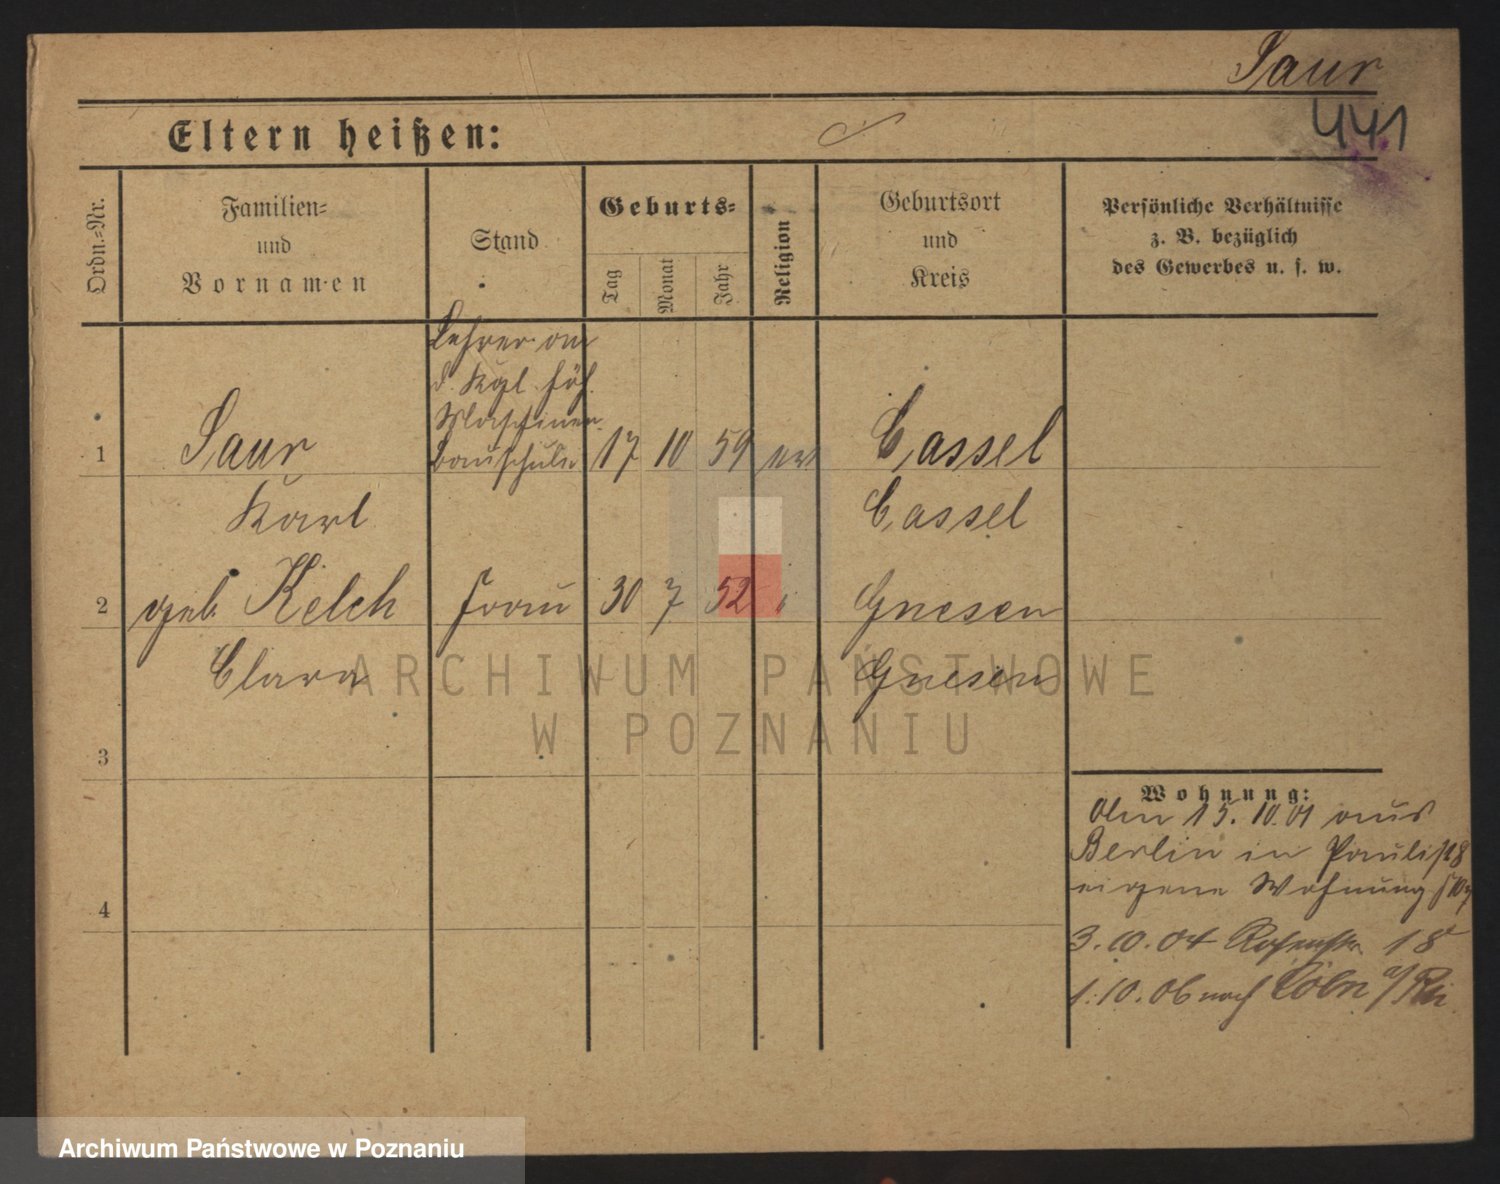 Saur
441
Eltern heißen:
Ordn.-Nr.
Familien-
und
Vornamen
Stand
Geburts-
Tag
Monat
Jahr
Religion
Geburtsort
und
Kreis
Persönliche Verhältnisse
z. B. bezüglich
des Gewerbes u. s. w.
Lehrer an
d. Kgl. höh.
Maschinen
1 Saur bauschule 17 10 59 ev Cassel
Karl Cassel
2 geb. Kelch Frau 30 7 52 Gnesen
Clara Gnesen
ARCHIWUM PAŃSTWOWE
W POZNANIU
3
4
Wohnung:
Am 15. 10. 01 aus
Berlin in Paulist 8
eigene Wohnung
3. 10. 04 18
1. 10. 06 nach Cöln a/Rh
Archiwum Państwowe w Poznaniu